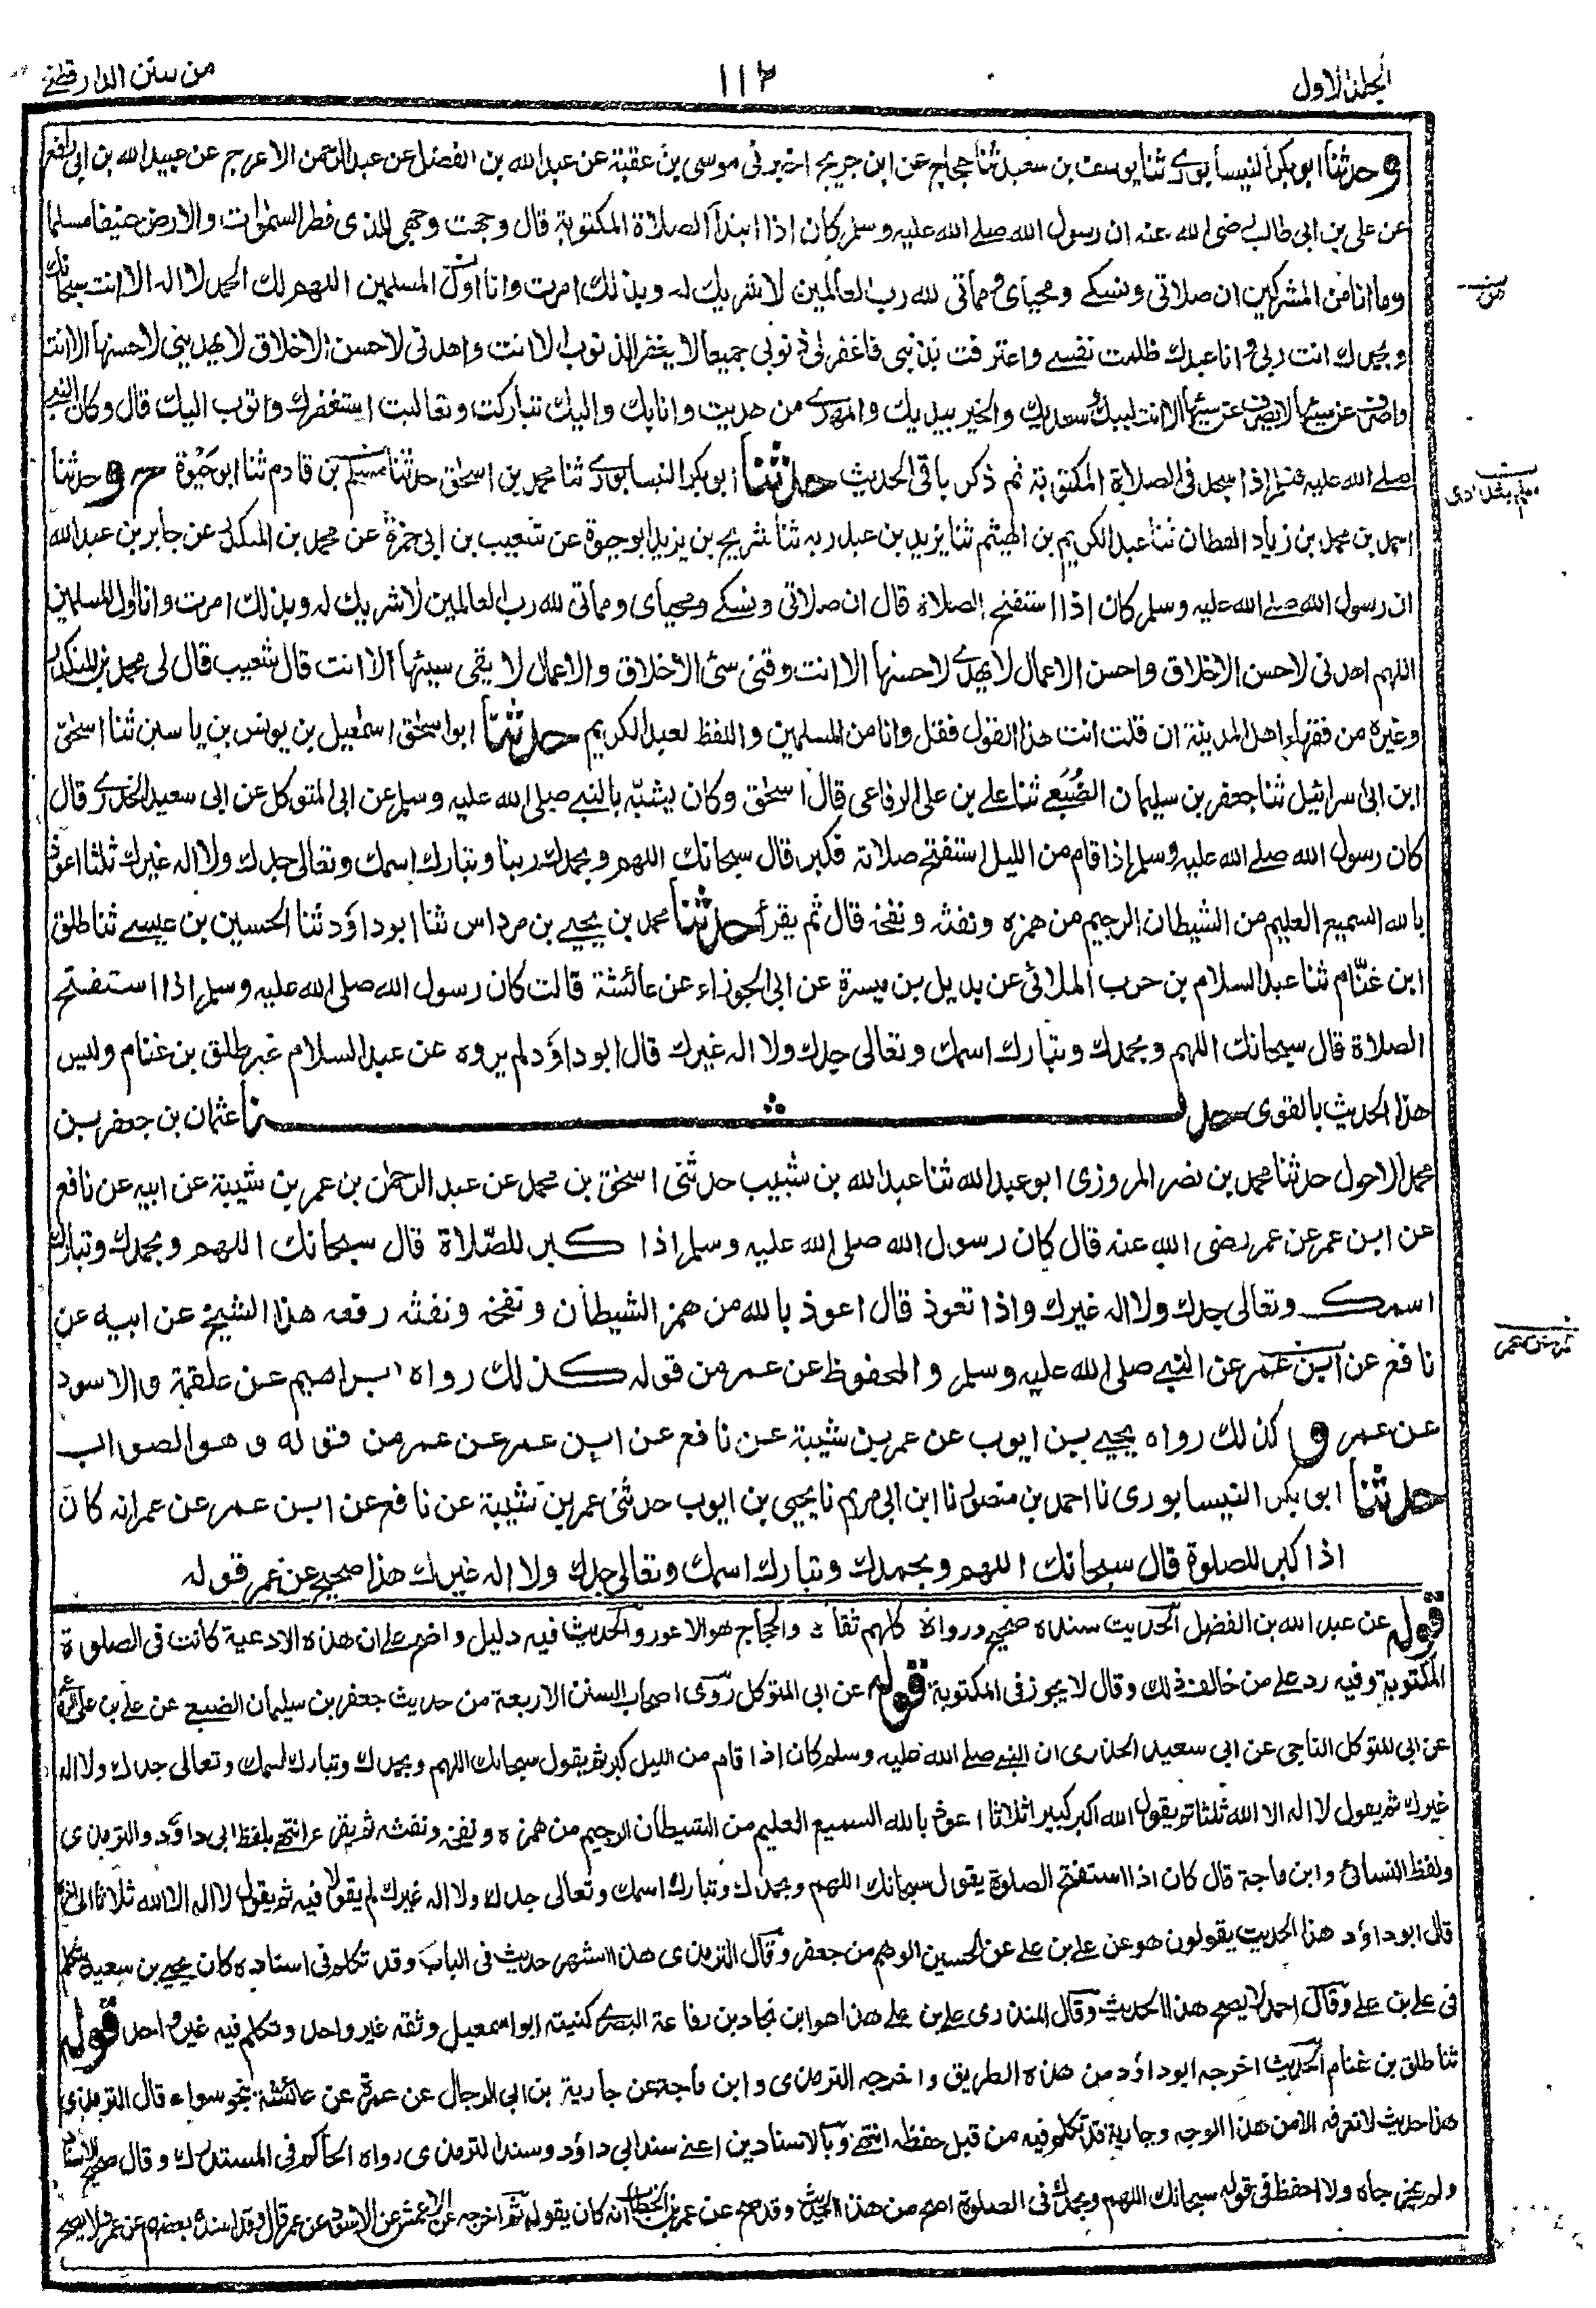 الجلد الاول
١١٢
من سنن الدارقطني
وحدثنا ابو بكر النيسابوري ثنا يوسف بن سعيد ثنا حجاج عن ابن جريج اخبرني موسى بن عقبة عن عبد الله بن الفضل عن عبد الرحمن الاعرج عن عبيد الله بن ابي رافع
عن علي بن ابي طالب رضى الله عنه ان رسول الله صلى الله عليه وسلم كان اذا ابتدأ الصلاة المكتوبة قال وجهت وجهي للذى فطر السموات والارض حنيفا مسلما
وما انا من المشركين ان صلاتي ونسكي ومحياى ومماتي لله رب العالمين لا شريك له وبذلك امرت وانا اول المسلمين اللهم لك الحمد لا اله الا انت سبحانك
من
وبحمدك انت ربي وانا عبدك ظلمت نفسي واعترفت بذنبي فاغفر لي ذنوبي جميعا لا يغفر الذنوب الا انت واهدني لاحسن الاخلاق لا يهديني لاحسنها الا انت
واصرف عني سيئها لا يصرف عني سيئها الا انت لبيك وسعديك والخير بيديك والمهدي من هديت وانا بك واليك تباركت وتعاليت استغفرك واتوب اليك قال وكان النبي
صلى الله عليه وسلم اذا سجد في الصلاة المكتوبة ثم ذكر باقي الحديث حدثنا ابو بكر النيسابوري ثنا محمد بن اسحق حدثنا بن قادم ثنا ابو حيوة ح وحدثنا
احمد بن محمد بن زياد القطان ثنا عبد الكريم بن الهيثم ثنا يزيد بن عبد ربه ثنا شريح بن يزيد ابو حيوة عن شعيب بن ابي حمزة عن محمد بن المنكدر عن جابر بن عبد الله
ان رسول الله صلى الله عليه وسلم كان اذا استفتح الصلاة قال ان صلاتي ونسكي ومحياى ومماتي لله رب العالمين لا شريك له وبذلك امرت وانا اول المسلمين
اللهم اهدني لاحسن الاخلاق واحسن الاعمال لا يهدي لاحسنها الا انت وقني سئ الاخلاق والاعمال لا يقى سيئها الا انت قال شعيب قال لي محمد بن المنكدر
وغيره من فقهاء اهل المدينة ان قلت انت هذا القول فقل وانا من المسلمين واللفظ لعبد الكريم حدثنا ابو اسحق اسمعيل بن يونس بن ياسين ثنا اسحق
ابن ابى اسرائيل ثنا جعفر بن سليمان الضبعي ثنا علي بن على الرفاعى قال اسحق وكان يشبه بالنبي صلى الله عليه وسلم عن ابي المتوكل عن ابى سعيد الخدري قال
كان رسول الله صلى الله عليه وسلم اذا قام من الليل استفتح صلاته فكبر قال سبحانك اللهم وبحمدك ربنا وتبارك اسمك وتعالى جدك ولا اله غيرك ثلثا اعوذ
بالله السميع العليم من الشيطان الرجيم من همزه ونفثه ونفخه قال ثم يقرأ حدثنا محمد بن يحيى بن مرداس ثنا ابو داؤد ثنا الحسين بن عيسى ثنا طلق
ابن غنام ثنا عبد السلام بن حرب الملائى عن بديل بن ميسرة عن ابى الجوزاء عن عائشة قالت كان رسول الله صلى الله عليه وسلم اذا استفتح
الصلاة قال سبحانك اللهم وبحمدك وتبارك اسمك وتعالى جدك ولا اله غيرك قال ابو داؤد لم يروه عن عبد السلام غير طلق بن غنام وليس
هذا الحديث بالقوى حدثنا عثمان بن جعفر بن
محمد الاحول حدثنا محمد بن نصر المروزى ابو عبد الله ثنا عبد الله بن شبيب حدثنى اسحق بن محمد عن عبد الرحمن بن عمر بن شيبة عن ابيه عن نافع
عن ابن عمر عن عمر رضى الله عنه قال كان رسول الله صلى الله عليه وسلم اذا كبر للصلاة قال سبحانك اللهم وبحمدك وتبارك
اسمك وتعالى جدك ولا اله غيرك واذا تعوذ قال اعوذ بالله من همز الشيطان ونفخه ونفثه رفعه هذا الشيخ عن ابيه عن
نافع عن ابن عمر عن النبي صلى الله عليه وسلم والمحفوظ عن عمر من قوله كذلك رواه ابراهيم عن علقمة والاسود
عن عمر وكذلك رواه يحيى بن ايوب عن عمر بن شيبة عن نافع عن ابن عمر عن عمر من قوله وهو الصواب
حدثنا ابو بكر النيسابورى نا احمد بن منصور نا ابن ابي مريم نا يحيى بن ايوب حدثنى عمر بن شيبة عن نافع عن ابن عمر عن عمر انه كان
اذا كبر للصلوة قال سبحانك اللهم وبحمدك وتبارك اسمك وتعالى جدك ولا اله غيرك هذا صحيح عن عمر قوله
قوله عن عبد الله بن الفضل الحديث سنده صحيح ورواته كلهم ثقات والحجاج هو الاعور والحديث فيه دليل واضح على ان هذه الادعية كانت فى الصلوة
المكتوبة وفيه رد على من خالف ذلك وقال لا يجوز فى المكتوبة قوله عن ابى المتوكل روى اصحاب السنن الاربعة من حديث جعفر بن سليمان الضبعي عن علي بن على
عن ابى المتوكل الناجى عن ابى سعيد الخدرى ان النبي صلى الله عليه وسلم كان اذا قام من الليل كبر ثم يقول سبحانك اللهم وبحمدك وتبارك اسمك وتعالى جدك ولا اله
غيرك ثم يقول لا اله الا الله ثلثا ثم يقول الله اكبر كبيرا ثلاثا اعوذ بالله السميع العليم من الشيطان الرجيم من همزه ونفخه ونفثه ثم يقرء انتهى بلفظ ابى داؤد والترمذى
ولفظ النسائى وابن ماجة قال كان اذا استفتح الصلوة يقول سبحانك اللهم وبحمدك وتبارك اسمك وتعالى جدك ولا اله غيرك لم يقولا فيه ثم يقول لا اله الا الله ثلاثا
قال ابو داؤد هذا الحديث يقولون هو عن علي بن علي عن الحسين الوهم من جعفر وقال الترمذى هذا اشهر حديث فى الباب وقد تكلم فى اسناده كان يحيى بن سعيد يتكلم
فى علي بن علي وقال احمد لا يصح هذا الحديث وقال المنذرى علي بن علي هذا هو ابن نجاد بن رفاعة البصرى كنيته ابو اسمعيل وثقه غير واحد وتكلم فيه غير واحد قوله
ثنا طلق بن غنام الحديث اخرجه ابو داؤد من هذه الطريق واخرجه الترمذى وابن ماجة عن حارثة بن ابى الرجال عن عمرة عن عائشة نحو سواء قال الترمذى
هذا حديث لا نعرفه الا من هذا الوجه وحارثة قد تكلم فيه من قبل حفظه انتهى وبالاسنادين اعنى سند ابى داؤد وسند الترمذى رواه الحاكم فى المستدرك وقال صحيح الاسناد
ولم يخرجاه ولا احفظ فى قوله سبحانك اللهم وبحمدك فى الصلوة اصح من هذا الحديث وقد صح عن عمر بن الخطاب انه كان يقوله ثم اخرجه عن الاعمش عن الاسود عن عمر قال وقد اسنده بعضهم عن عمر ولا يصح